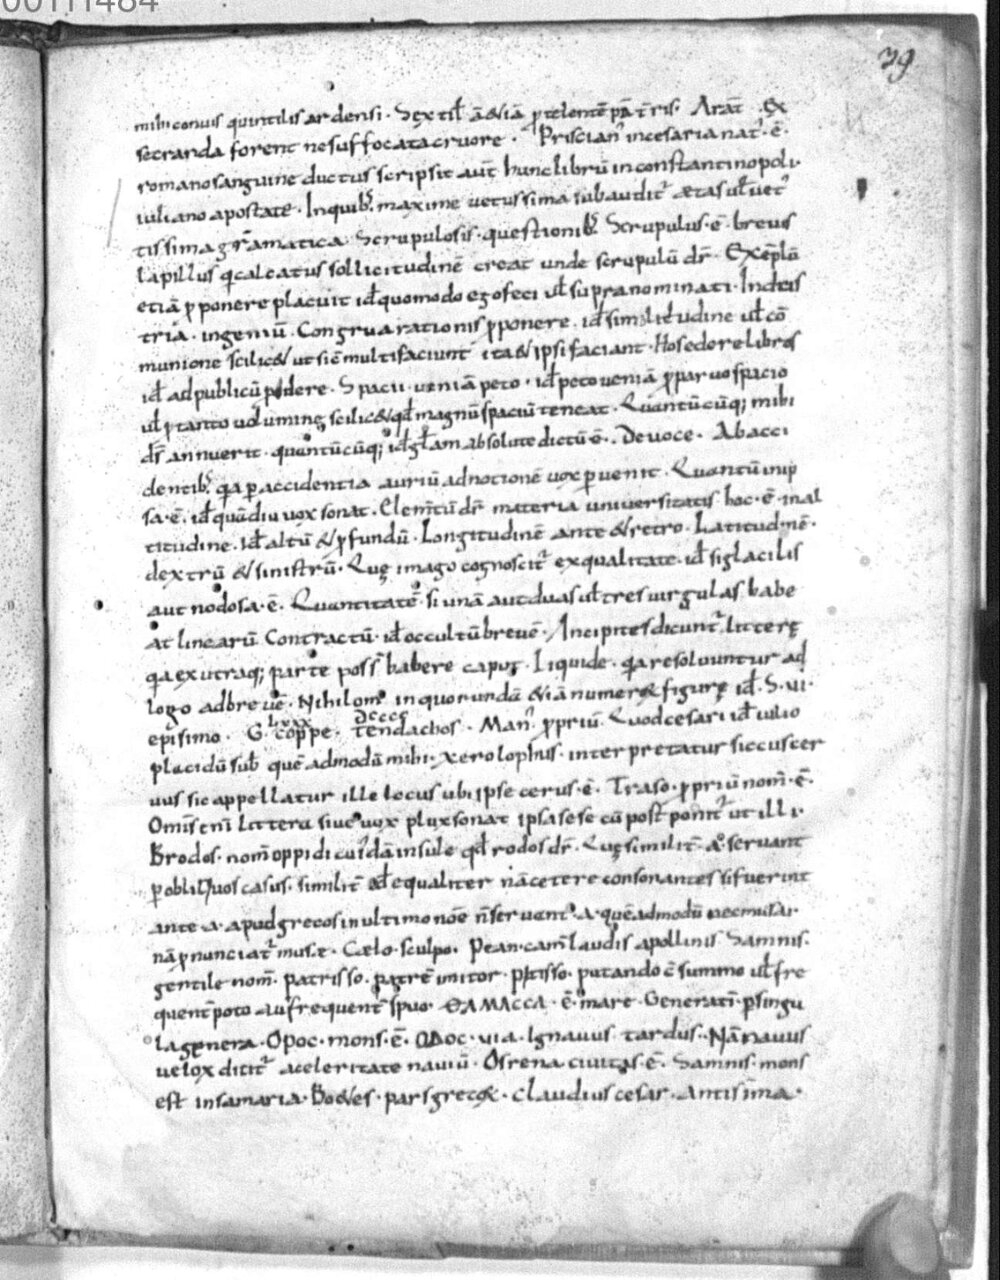 00111484
39
mihi conuis quintilis ardensi · Sextil̄ ā&iā p̱telentē pā t̄ris · Arat̄ · Ex
secranda forent ne suffocata cruore · Priscian᾿ incesaria nat᾿ · ē ·
romano sanguine ductus scripsit aut̄ hunc librū in constantinopoli ·
iuliano apostate · In quib; maxime uetussima subaudit᾿ ætas ul̄ uet᾿
tissima gramatica · Scrupulosis · questionib; Scrupulus · ē · breuis
lapillus q̄ calcatus sollicitudinē creat unde scrupulū dr̄ · Exēplū
etiā p̱ponere placuit id̄ quomodo ego feci ul̄ supra nominati · Indus
tria · ingeniū · Congrua rationis p̱ponere · id̄ similitudine ul̄ cō
munione scilic& ut siē multi faciunt ita & ipsi faciant · Hos edere libros
id̄ ad publicū p̱dere · Spacii · ueniā peto · id̄ peto ueniā p̱ paruo spacio
ul̄ p̱ tanto uolumine scilic& qd̄ magnū spaciū teneat · Quantūcūq; mihi
dr̄ annuerit · quantūcūq; id̄ absolute dictū ē · De uoce · Ab acci
dentib; q̄a p̱ accidentia auriū ad notionē uox p̱uenit · Quantū in ip
sa · ē · id̄ quādiu uox sonat · Elem̄tū dr̄ materia uniuersitatis hoc · ē · in al
titudine · Id̄ altū & p̱fundū · Longitudinē ante & retro · Latitudinē ·
dextrū & sinistrū · Quę imago cognoscit᾿ ex qualitate · id̄ si glacilis
aut nodosa · ē · Quantitatē · si unā aut duas ul̄ tres uirgulas habe
at linearū Contractū · id̄ occultū breuē · Ancipites dicunt᾿ litterę
q̄a ex utraq; parte poss̄ habere caput · Liquidę · q̄a resoluuntur ad
logo ad breuē · Nihilom᾿ in quorundā &iā numer& figurę id̄ · S · ui ·
episimo · G · coppe · tendachos · Man᾿ p̱priū · Quod cesari id̄ iulio
lxxx dcccc
placidū sub quēadmodū mihi · xerolophus · interpretatur siccus cer
uus sic appellatur ille locus ubi ipse cerus · ē · Traso · p̱priū nom̄ · ē ·
Omis̄ eni᷄ littera siue uox plux sonat ipsa sese cū post ponit᾿ ut illi ·
Brodos · nom̄ oppidi cuidā insule qd̄ rodos dr̄ · Quę similit̄ · a · seruant
p̱ obliquos casus · similit̄ id̄ equaliter nā cetere consonantes si fuerint
ante · a · apud grecos in ultimo nōe n̄ seruant᾿ · a · quēadmodū nec musa ·
nā p̱nunciat᾿ musæ · Cælo · sculpo · Pean · cam̄ laudis apollinis Samnis ·
gentile nom̄ · patrisso · patrē imitor · pitisso · putando ē summo ul̄ fre
quent̄ poto au᾿ frequent̄ spuo · ΘΑΛΛΑCCΑ · ē · mare · Generati᷄ · p̱ singu
la genera · Opoc · mons · ē · Odoc · uia · Ignauus tardus · Nā nauus
uelox dicit᾿ a celeritate nauiū · Osrena ciuitas · ē · Samnis · mons
est in samaria · Boetes · pars grecor · Claudius cesar · Antisima ·